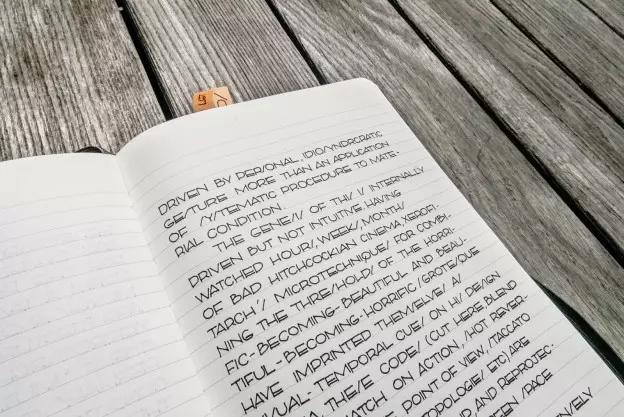 DRIVEN BY PERSONAL, IDIOSYNDRCRATIC
GESTURE MORE THAN AN APPLICATION
OF SYSTEMATIC PROCEDURE TO MATE-
RIAL CONDITION.
THE GENESIS OF THIS IS INTERNALLY
DRIVEN BUT NOT INTUITIVE. HAVING
WATCHED HOURS, WEEKS, MONTHS
OF BAD HITCHCOCKIAN CINEMA, XEROFI-
TARCH'S MICROTECHNIQUES FOR COMBI-
NING THE THRESHOLDS OF THE HORRI-
FIC-BECOMING-BEAUTIFUL AND BEAU-
TIFUL-BECOMING-HORRIFIC (GROTESQUE
HAVE IMPRINTED THEMSELVES AS
VISUAL-TEMPORAL CUES ON HIS DESIGN
THESE CODES (CUT HERE, BLEND
MATCH ON ACTION, SHOT REVER-
POINT OF VIEW, STACCATO
ETC) ARE
AND REPROJEC-
SPACE